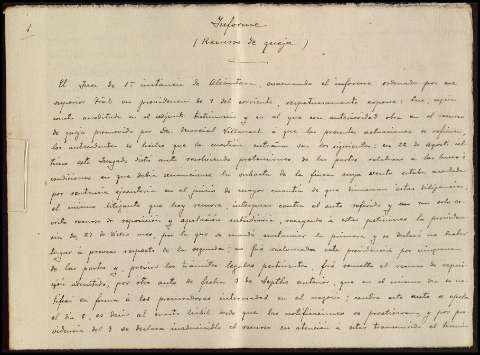 1
Informe
(Recurso de queja)
El Juez de 1ª instancia de Alcántara, evacuando el informe ordenado por ese
superior Tribl. en providencia de 7 del corriente, respetuosamente expone: Que, segun
consta acreditado en el adjunto testimonio y en el que con anterioridad obra en el recurso
de queja promovido por Dn. Marcial Villamart á que las presentes actuaciones se refieren,
los antecedentes de hecho que la cuestión entrañan son los siguientes: en 22 de Agosto el
este Juzgado dictó auto resolviendo pretensiones de las partes relativas á las bases ó
condiciones en que debía anunciarse la subasta de la finca cuya venta estaba acordada
por sentencia ejecutoria en el juicio de mayor cuantía de que dimanan estas diligencias;
el mismo litigante que hoy recurre, interpuso contra el auto referido y en un solo es-
crito recurso de reposición y apelación subsidiaria, recayendo á estas peticiones la providen-
cia de 27 de dicho mes, por la que se mandó sustanciar la primera, y se declaró no haber
lugar á proveer respecto de la segunda; no fué reclamada esta providencia por ninguna
de las partes y, previos los trámites legales pertinentes, fué resuelto el recurso de repo-
sición admitido, por otro auto de fecha 3 de Septbre. anterior, que en el mismo día se no-
tificó en forma á los procuradores interesados en el negocio; contra este auto se apela
el día 8, es decir al cuarto hábil desde que las notificaciones se practicaron, y por pro-
videncia del 9 se declara inadmisible el recurso en atención á estar transcurrido el térmi-